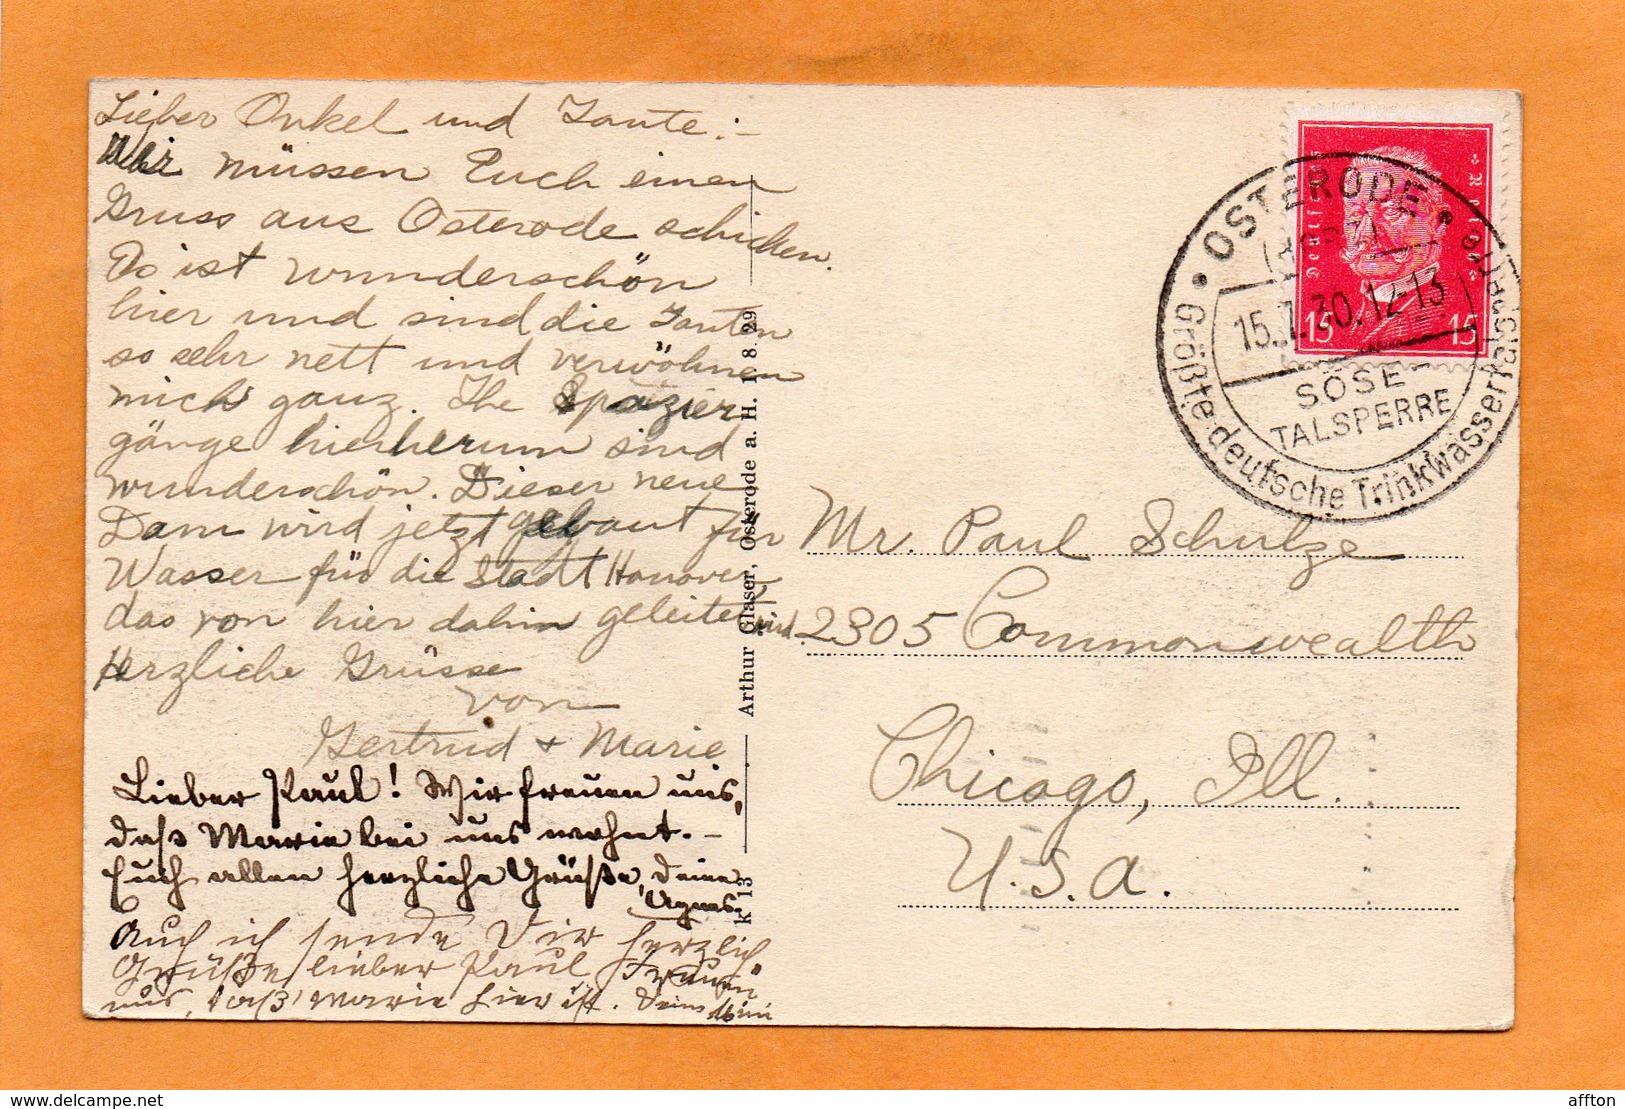 Lieber Onkel und Tante:-
Wir müssen Euch einen
Gruss aus Osterode schicken.
Es ist wunderschön
hier und sind die Tanten
so sehr nett und verwöhnen
mich ganz. Die Spazier
gänge hierherum sind
wunderschön. Dieser neue
Dam wird jetzt gebaut für
Wasser für die Stadt Hanover,
das von hier dahin geleitet wird.
Herzliche Grüsse
von
Gertrud + Marie
Lieber Paul! Wir freuen uns,
daß Marie bei uns wohnt.-
Euch allen herzliche Grüße, Deine
Agnes.
Auch ich sende Dir herzlich
Grüße, lieber Paul. Freuen
uns, daß Marie hier ist. Deine Mimi
Arthur Glaser, Osterode a. H. I 8. 29
K 13
Deutsches Reich
15 15
OSTERODE
(HARZ)
15.7.30.12-13
SÖSE-
TALSPERRE
Größte deutsche Trinkwassertalsperre
Mr. Paul Schulze
2305 Commonwealth
Chicago, Ill.
U.S.A.
delcampe.net
affton